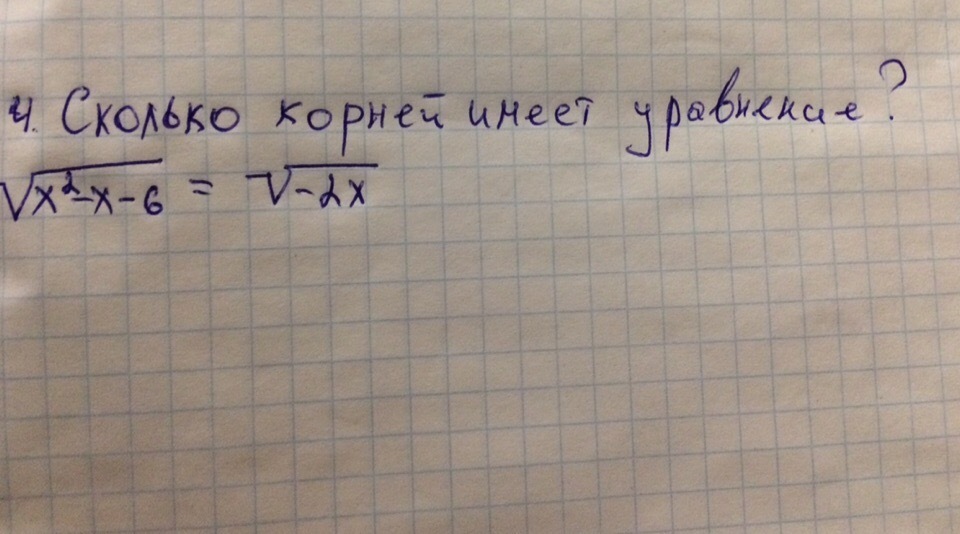 4. Сколько корней имеет уравнение?
√x²-x-6 = √-2x